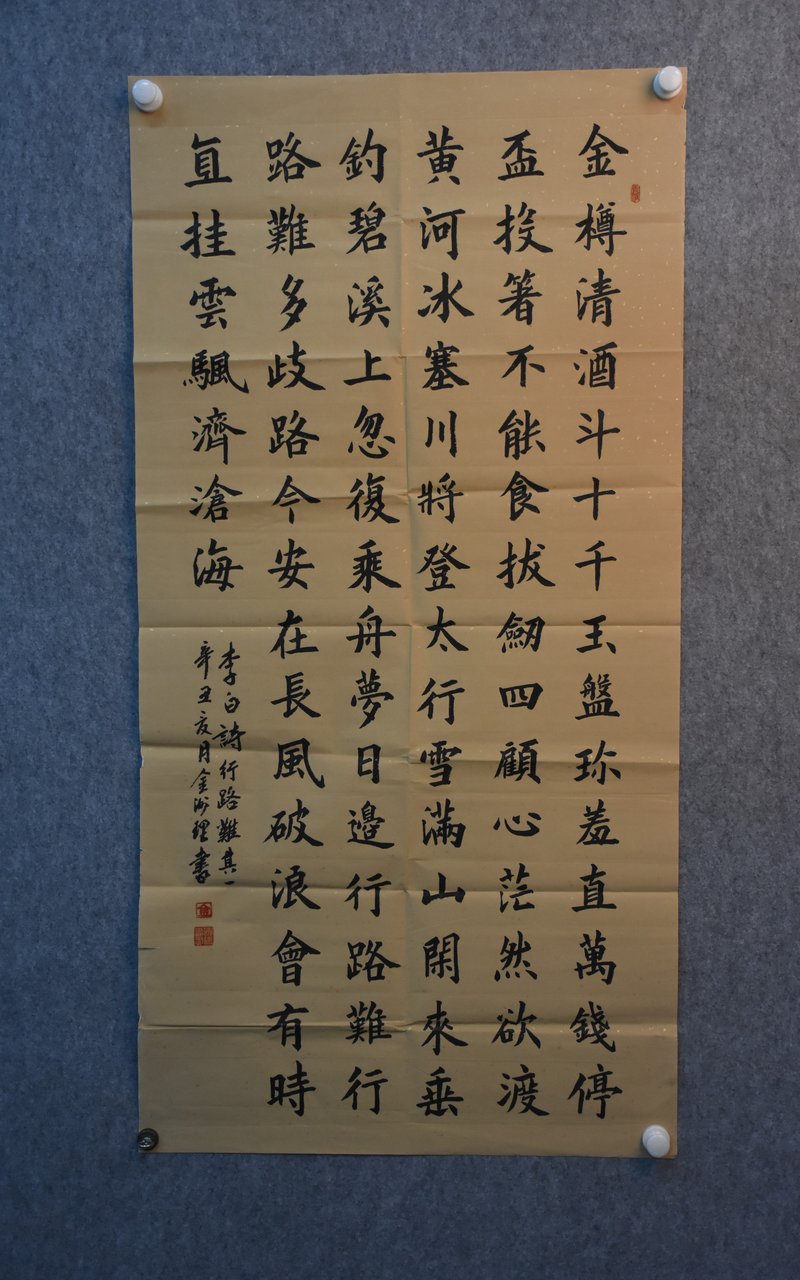 金樽清酒斗十千玉盤珎羞直萬錢停
盃投箸不能食拔劒四顧心茫然欲渡
黃河冰塞川將登太行雪滿山閑來垂
釣碧溪上忽復乘舟夢日邊行路難行
路難多歧路今安在長風破浪會有時
直挂雲颿濟滄海
李白詩行路難其一
辛丑亥月金沙理書